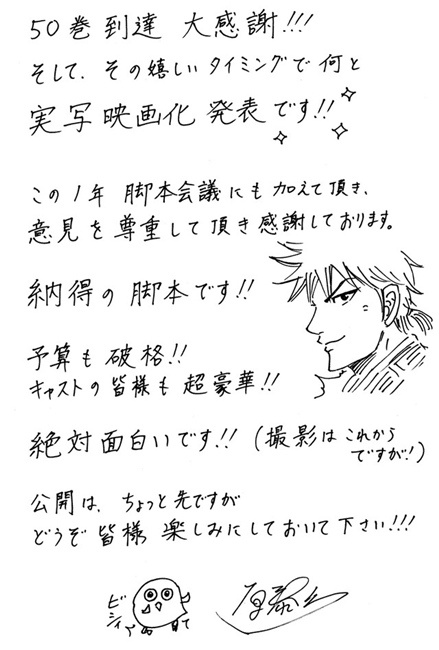 50巻到達 大感謝!!!
そして、その嬉しいタイミングで何と
実写映画化発表です!!
この1年 脚本会議にも加えて頂き、
意見を尊重して頂き感謝しております。
納得の脚本です!!
予算も破格!!
キャストの皆様も超豪華!!
絶対面白いです!!(撮影はこれから
ですが!)
公開は、ちょっと先ですが
どうぞ皆様楽しみにしておいて下さい!!!
ビシィ
原泰久